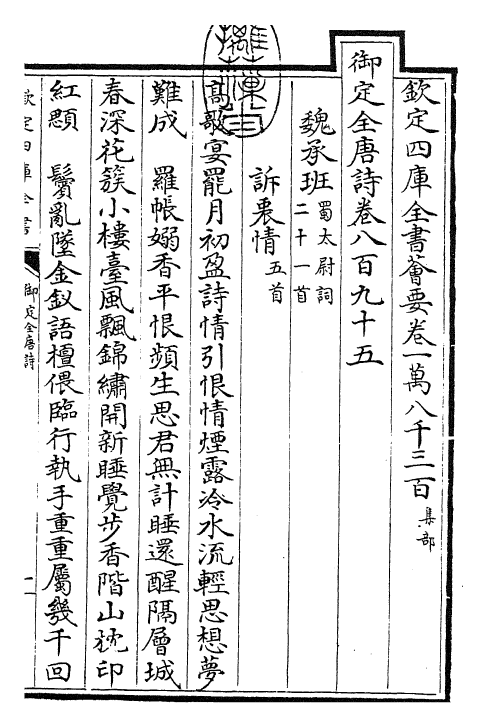 欽定四庫全書薈要卷一萬八千三百 集部
御定全唐詩卷八百九十五
魏承班 蜀太尉詞二十一首
訴衷情 五首
高歌宴罷月初盈詩情引恨情煙露冷水流輕思想夢
難成 羅帳嫋香平恨頻生思君無計睡還醒隔層城
春深花簇小樓臺風飄錦繡開新睡覺步香階山枕印
紅顋 鬢亂墜金釵語檀偎臨行執手重重屬幾千回
欽定四庫全書
御定全唐詩